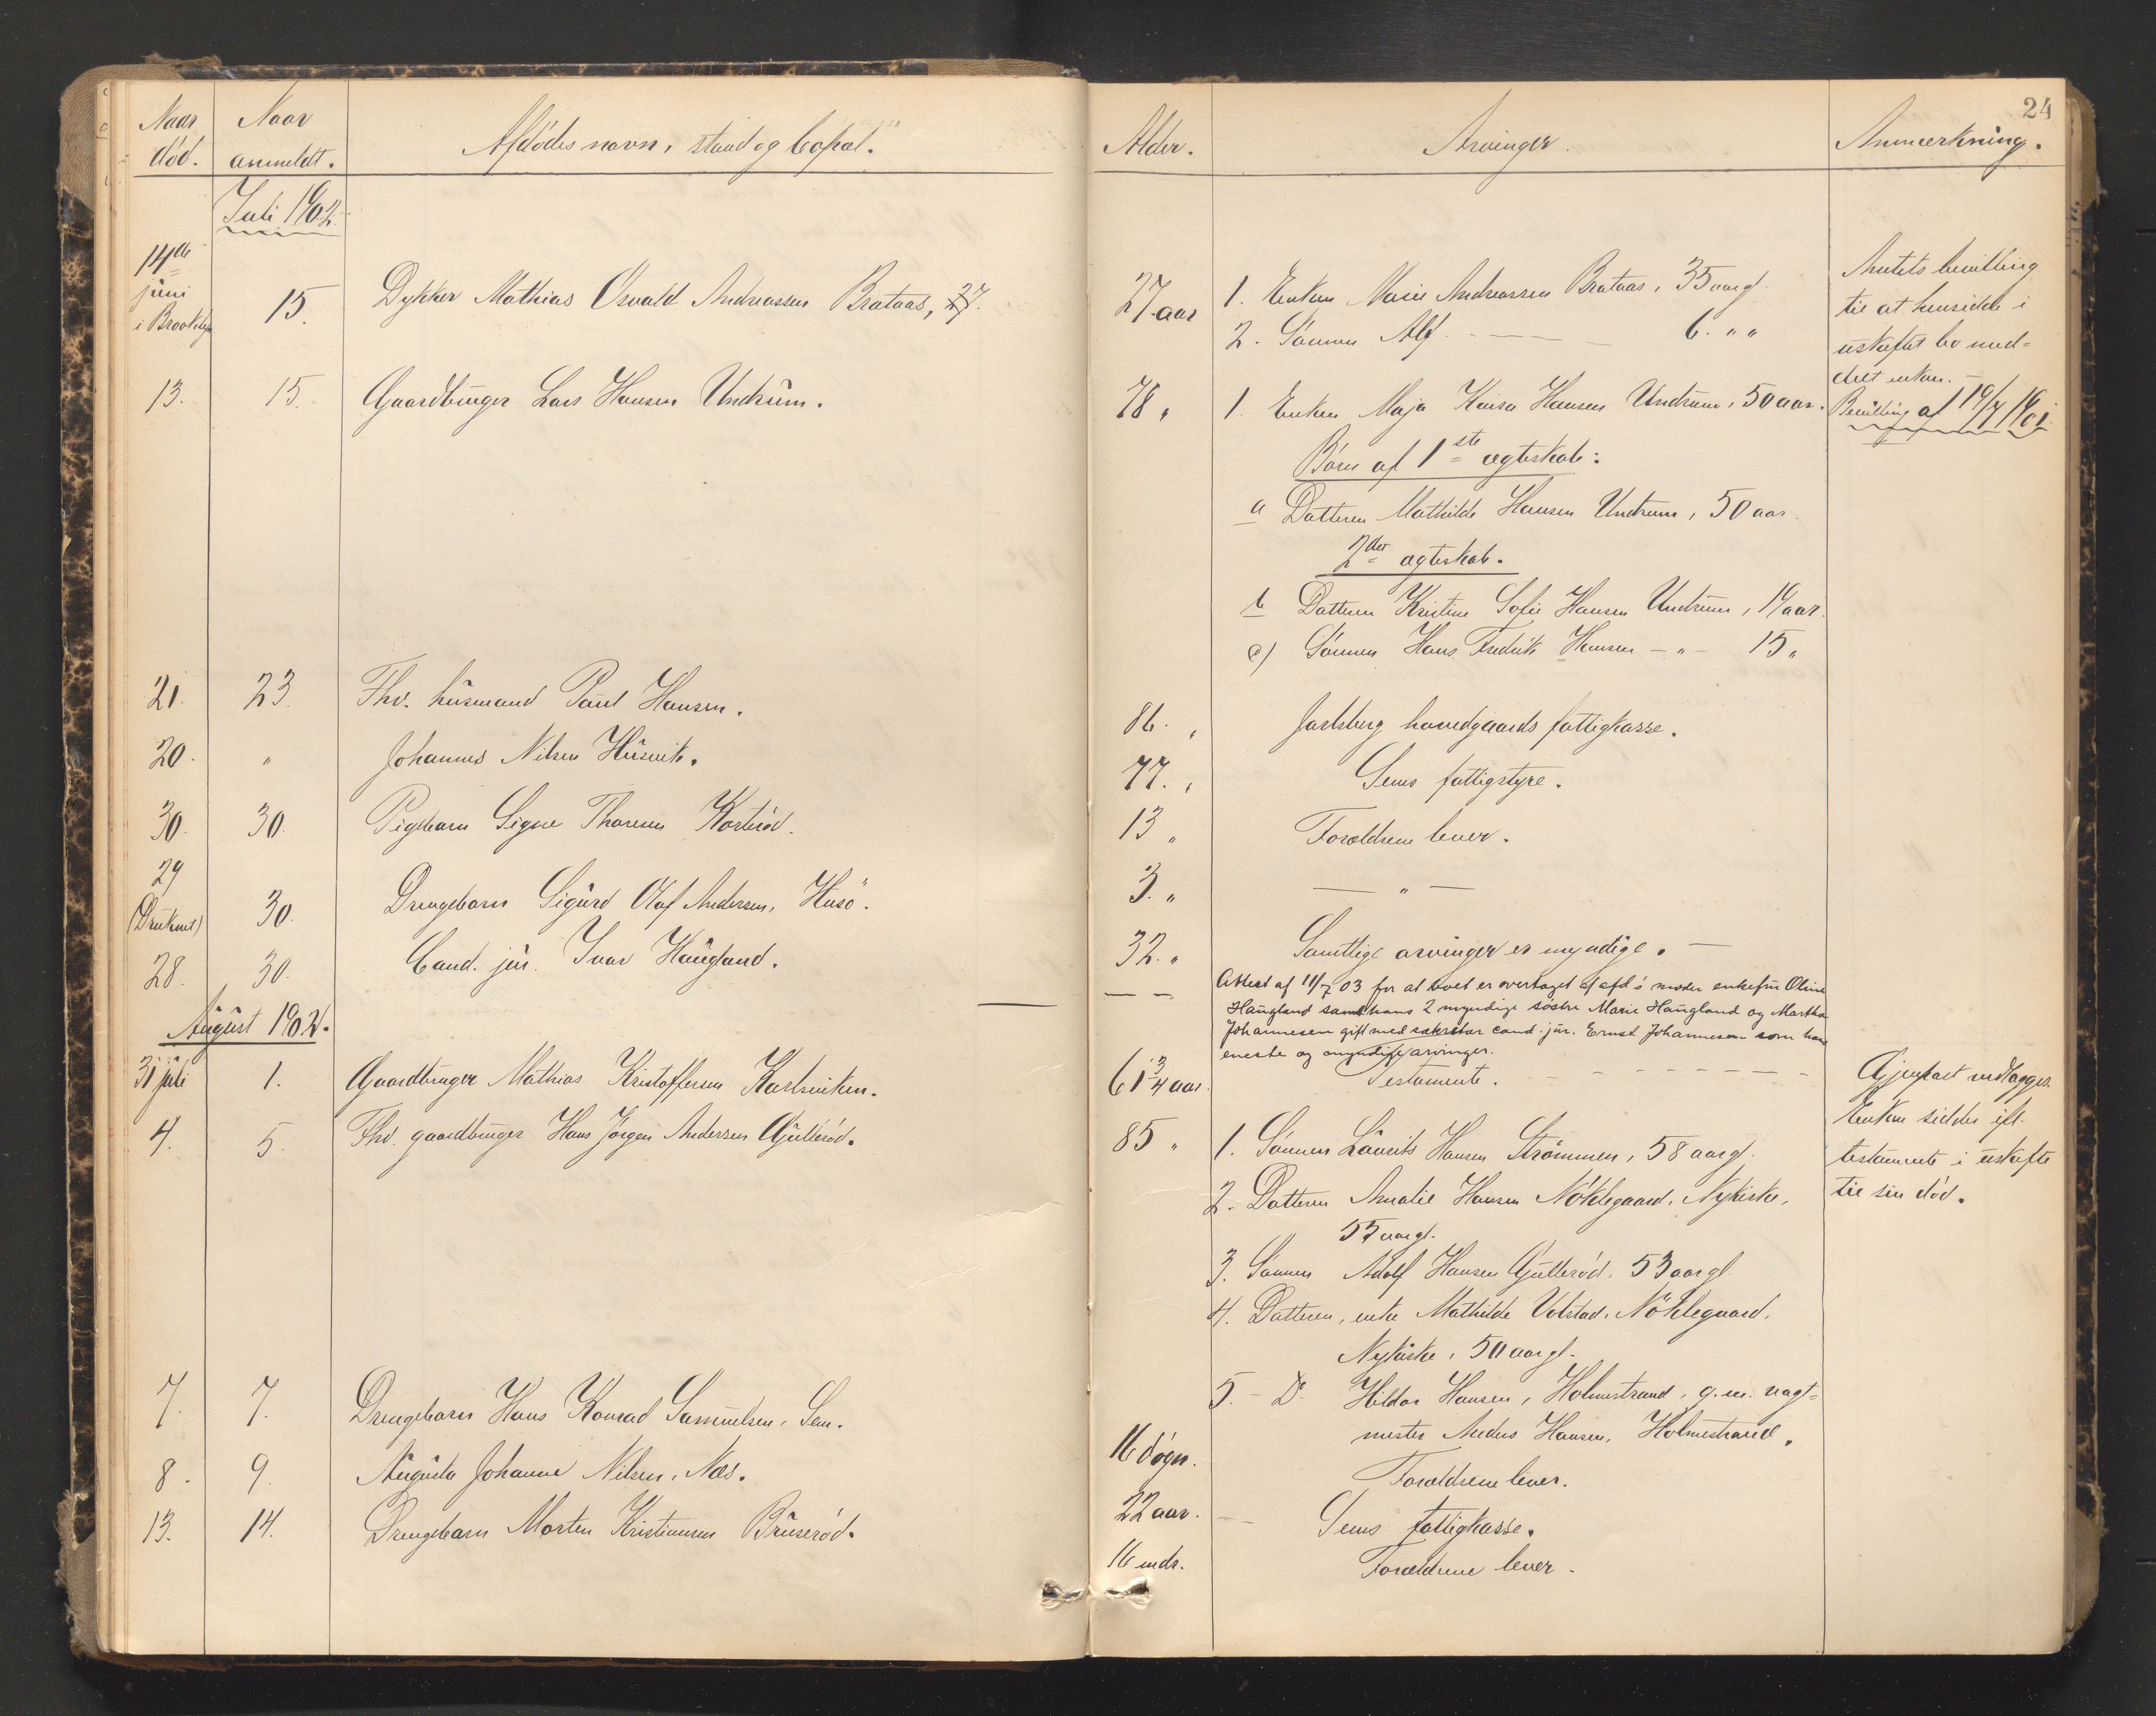 24
Naar død.
Naar anmeldt.
Afdødes navn, stand og bopæl.
Alder.
Arvinger.
Anmærkning.
Juli 1902
14de juni i Brooklyn
15.
Dykker Mathias Osvald Andreassen Brataas, 27.
27 aar
1. Enken Marie Andreassen Brataas, 35 aar gl.
2. Sønnen Alf — — — 6. " "
Amtets bevilling
til at hensidde i
uskiftet bo med-
delt enken. —
Bevilling af 19/7 1902.
13.
15.
Gaardbruger Lars Hansen Undrum.
78 "
1. Enken Maja Kaisa Hansen Undrum, 50 aar.
Børn af 1ste ægteskab:
a Datteren Mathilde Hansen Undrum, 50 aar.
2det ægteskab.
b Datteren Kristine Sofie Hansen Undrum, 19 aar.
c) Sønnen Hans Fredrik Hansen — " — 15 "
21.
23.
Fhv. husmand Paul Hansen.
86. "
Jarlsberg hovedgaards fattigkasse.
20.
"
Johannes Nilsen Husvik.
77. "
Sems fattigstyre.
30.
30.
Pigebarn Signe Thoresen Korterød.
13 "
Forældrene lever.
29
(Druknet)
30.
Drengebarn Sigurd Olaf Andersen, Husø.
3. "
— " —
28.
30.
Cand. jur. Ivar Haugland.
32. "
Samtlige arvinger er myndige. —
— —
Attest af 11/7 03 for at boet er overtaget af afd's moder enkefru Oline
Haugland samt hans 2 myndige søstre Marie Haugland og Martha
Johannesen gift med sekretær cand. jur. Ernst Johannesen som hans
eneste og myndige arvinger.
August 1902.
31 juli
1.
Gaardbruger Mathias Kristoffersen Karlsviken.
61 3/4 aar.
Testamente. — — — — — — —
Gjenpart vedlægges.
Enken sidder ifl.
testamente i uskifte
til sin død.
4.
5.
Fhv. gaardbruger Hans Jørgen Andersen Gullerød.
85 "
1. Sønnen Laurits Hansen Strømmen, 58 aar gl.
2. Datteren Amalie Hansen Nöklegaard, Nykirke,
55 aar gl.
3. Sønnen Adolf Hansen Gullerød, 53 aar gl.
4. Datteren, enke Mathilde Volstad, Nöklegaard,
Nykirke, 50 aar gl.
5. — Do Hilda Hansen, Holmestrand, g. m. vagt-
mester Anders Hansen, Holmestrand.
7.
7.
Drengebarn Hans Konrad Samuelsen, Sem.
16 døgn.
Forældrene lever.
8.
9.
Augusta Johanne Nilsen, Næs.
22 aar. —
Sems fattigkasse.
13.
14.
Drengebarn Morten Kristiansen Bruserød.
16 mdr.
Forældrene lever.